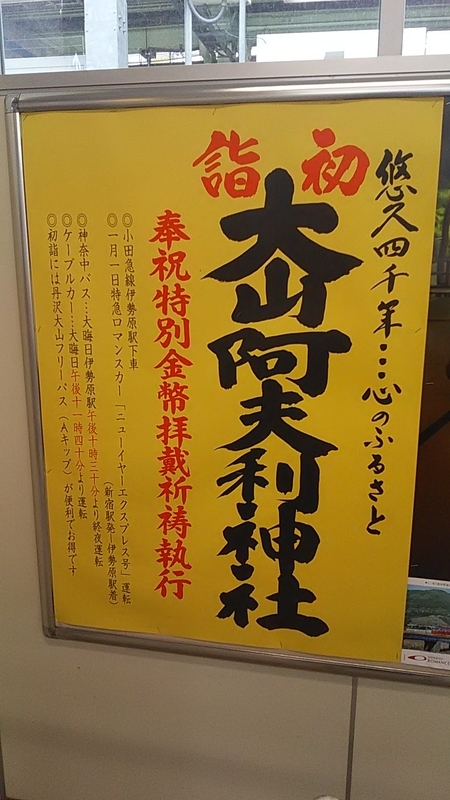 悠久四千年…心のふるさと
初詣
大山阿夫利神社
奉祝特別金幣拝戴祈祷執行
◎小田急線伊勢原駅下車
◎一月一日特急ロマンスカー「ニューイヤーエクスプレス号」運転
(新宿駅発ー伊勢原駅着)
◎神奈中バス…大晦日伊勢原駅午後十時三十分より終夜運転
◎ケーブルカー…大晦日午後十一時四十分より運転
◎初詣には丹沢大山フリーパス(Aキップ)が便利でお得です